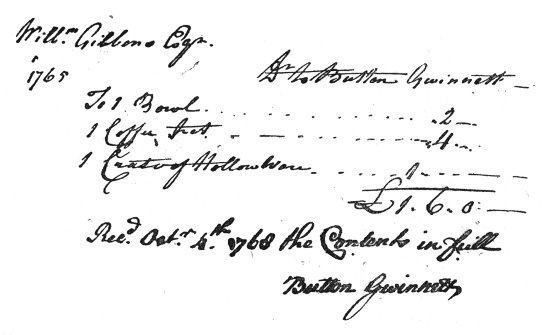 Will.m Gibbons Esqr.
1765 Dr to Button Gwinnett —
To 1 Bowl . . . . . . . . . . ,, 2 —
1 Coffee Pot . — . . . . . . . ,, 4 —
1 Crate of Hollow Ware . . . . . 1 . —
£1. 6. 0 —
Rec.d Oct.r 4.th 1768 the Contents in full
Button Gwinnett,